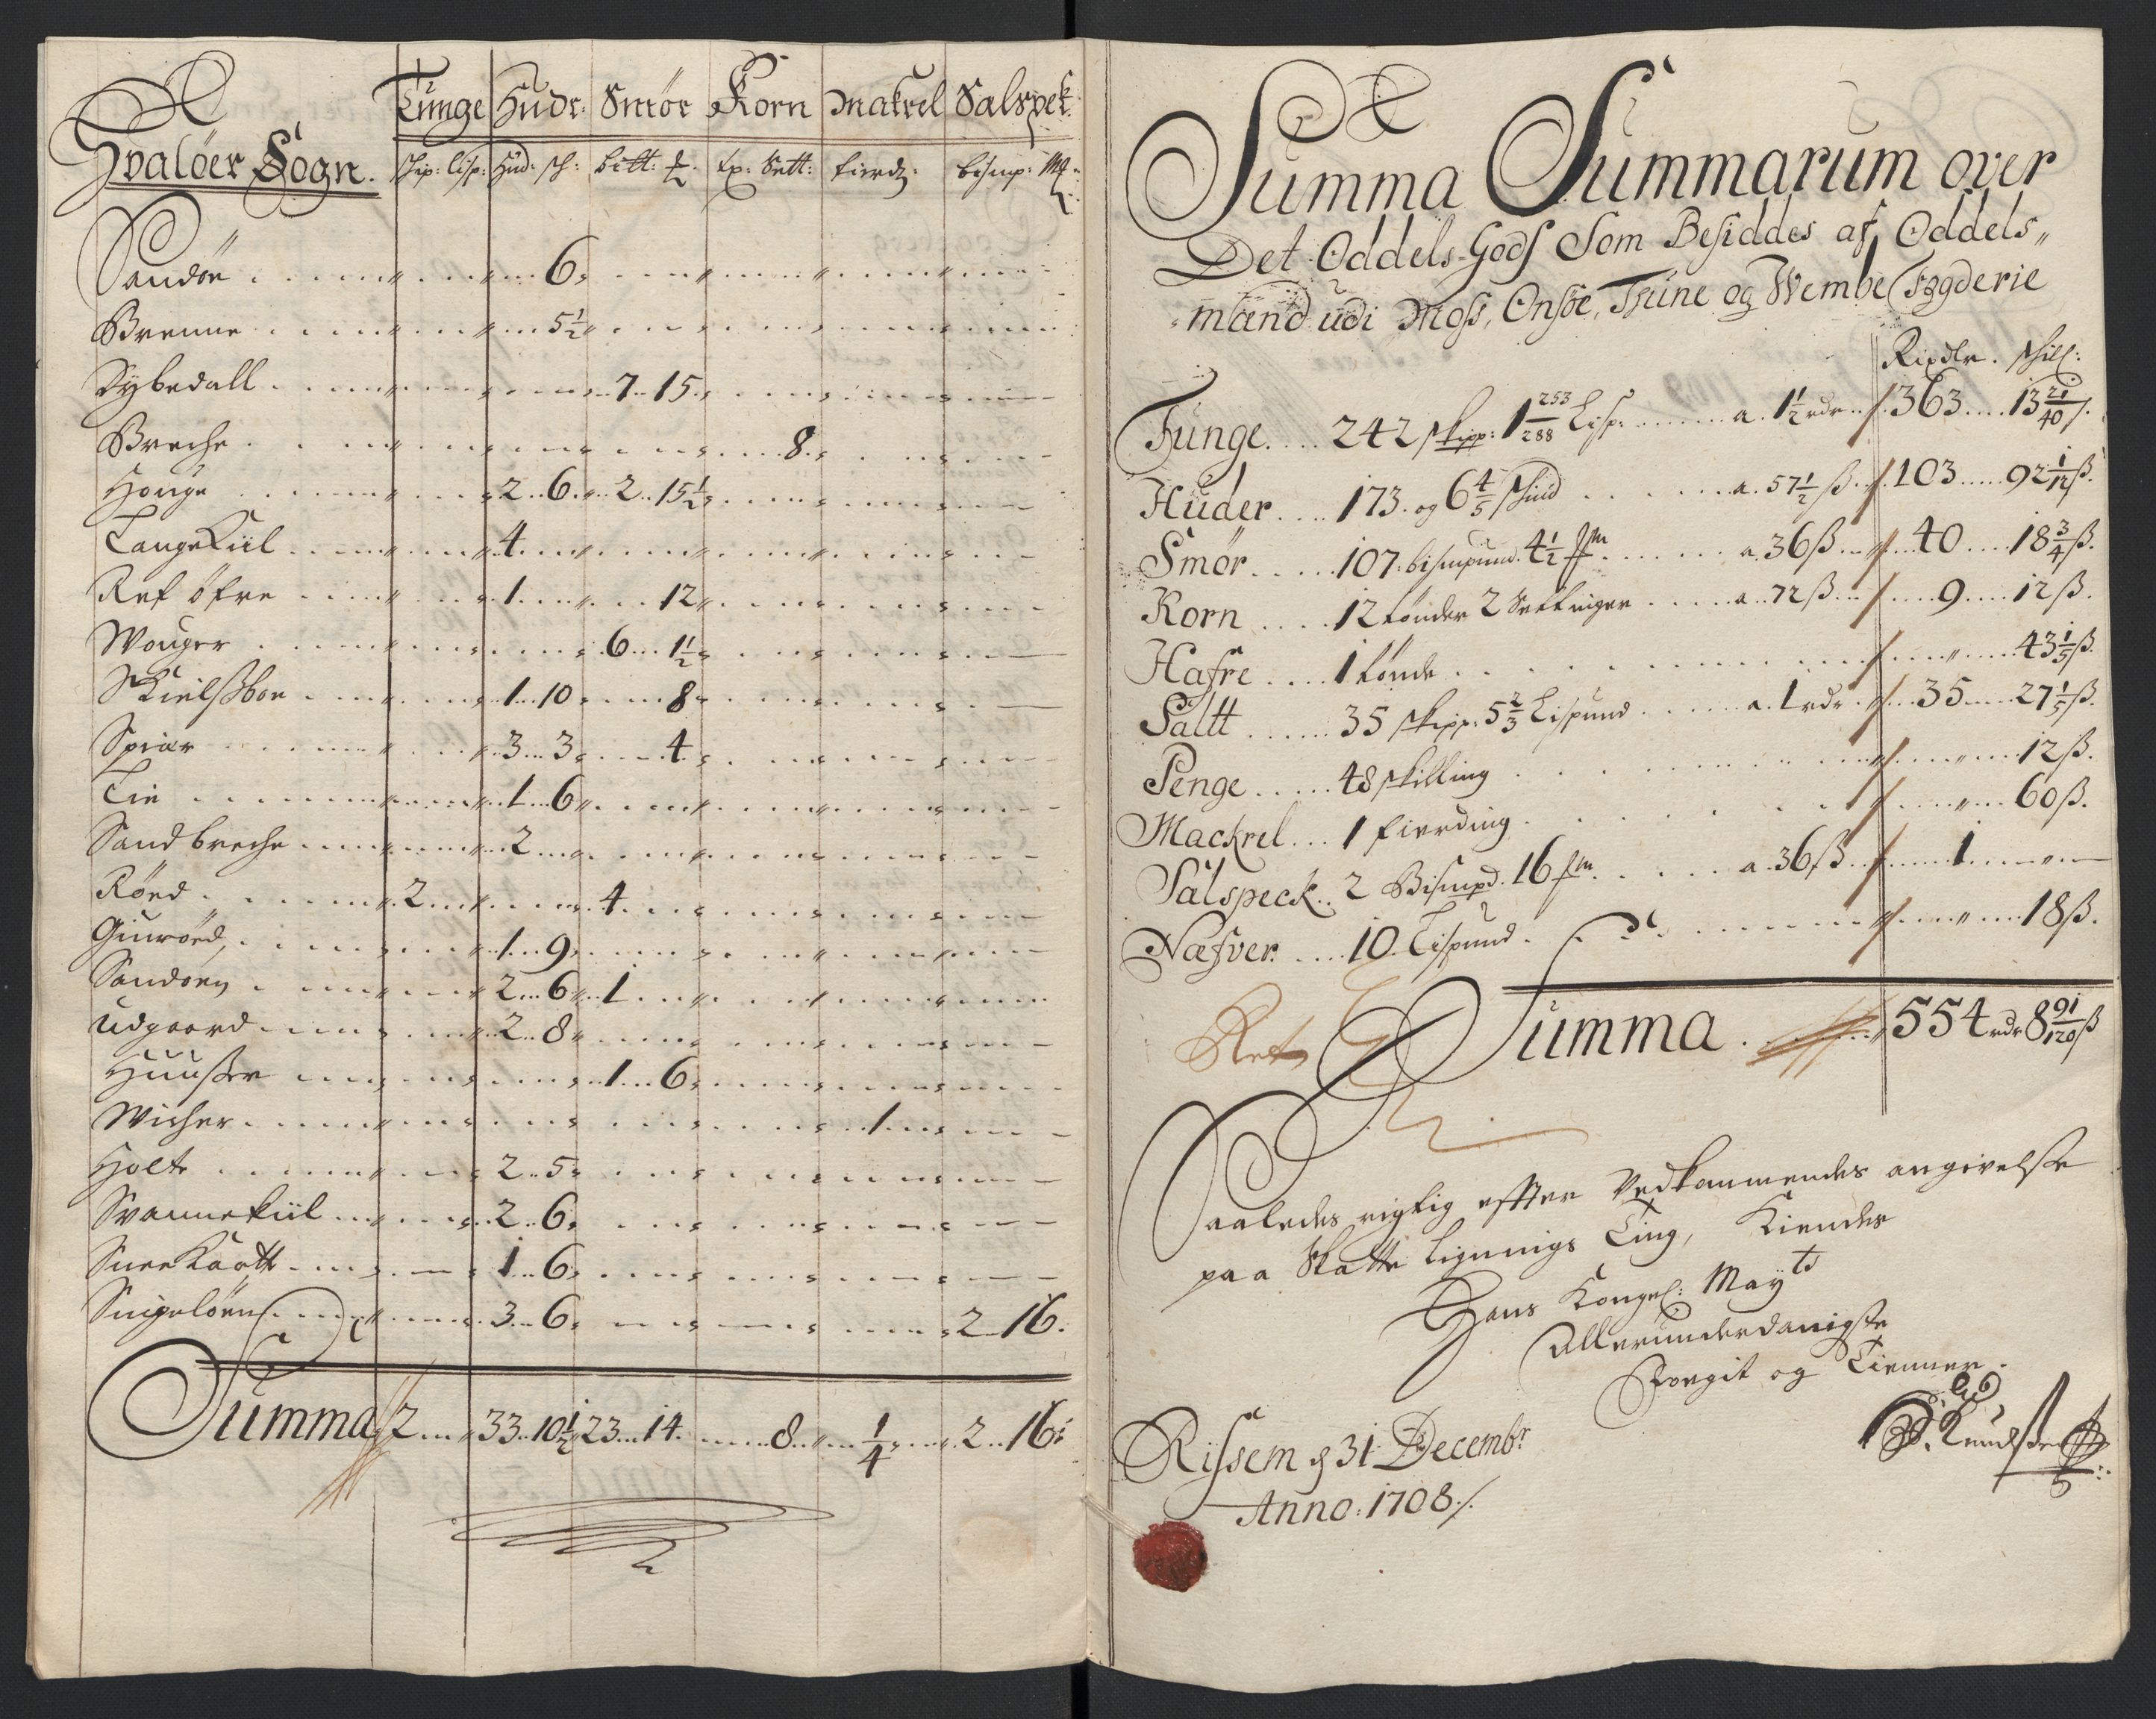 Tunge Hudr: Smör Korn Makrel Salspek
Hvalöer Sogn. skip: lisp: Hud: sch: bitt: tp: Sett: fierd: bismp: Mk
Sandöe 6
Brenne 5½
Dybedall 7 15
Breche 8
Houge 2 6 2 15½
TangeKiil 4
Ref öfre 1 12
Wouger 6 1½
Skielsboe 1 10 8
Spiær 3 3 4
Tie 1 6
Sandbreche 2
Röed 2 4
Giuröed 1 9
Sandöen 2 6 1
Udgaard 2 8
Huuser 1 6
Wicher 1
Holte 2 5
Svannekiil 2 6
Kaatt 1 6
Singelöen 3 6 2 16
Summa 2 33 10½ 23 14 8 ¼ 2 16
Summa Summarum over
Det Oddels-Gods Som Besiddes af Oddels
mænd udi Moss, Onsöe, Thune og Wembe Fogderie
Rixdlr. skill:
Tunge 242 skipp: 1 253/288 Lisp: a 1½ rdr 363 13 21/40 s.
Huder 173 og 6 4/5 skind a 57½ ß 103 92 1/12 ß.
Smör 107 bismpund 4½ a 36 ß 40 18¾ ß.
Korn 12 tönder 2 Settinger a 72 ß 9 12 ß.
Hafre 1 tönde 43 1/5 ß.
Saltt 35 skipp: 5 2/3 Lispund a 1 rdr 35 27 1/5 ß.
Penge 48 skilling 12 ß.
Mackrel 1 fierding 60 ß.
Salspeck 2 Bismpd. 16 a 36 ß 1
Næfver 10 Lispund 18 ß.
Summa 554 rdr 8 91/120 ß
Saaledes rigtig effter Vedkommendes angivelse
paa Skatte Lignings Ting, Kiendes
Hans Kongel: Mayts
Allerunderdanigste
Foegit og Tienner.
Rissem d 31 Decembr
Anno: 1708 /.